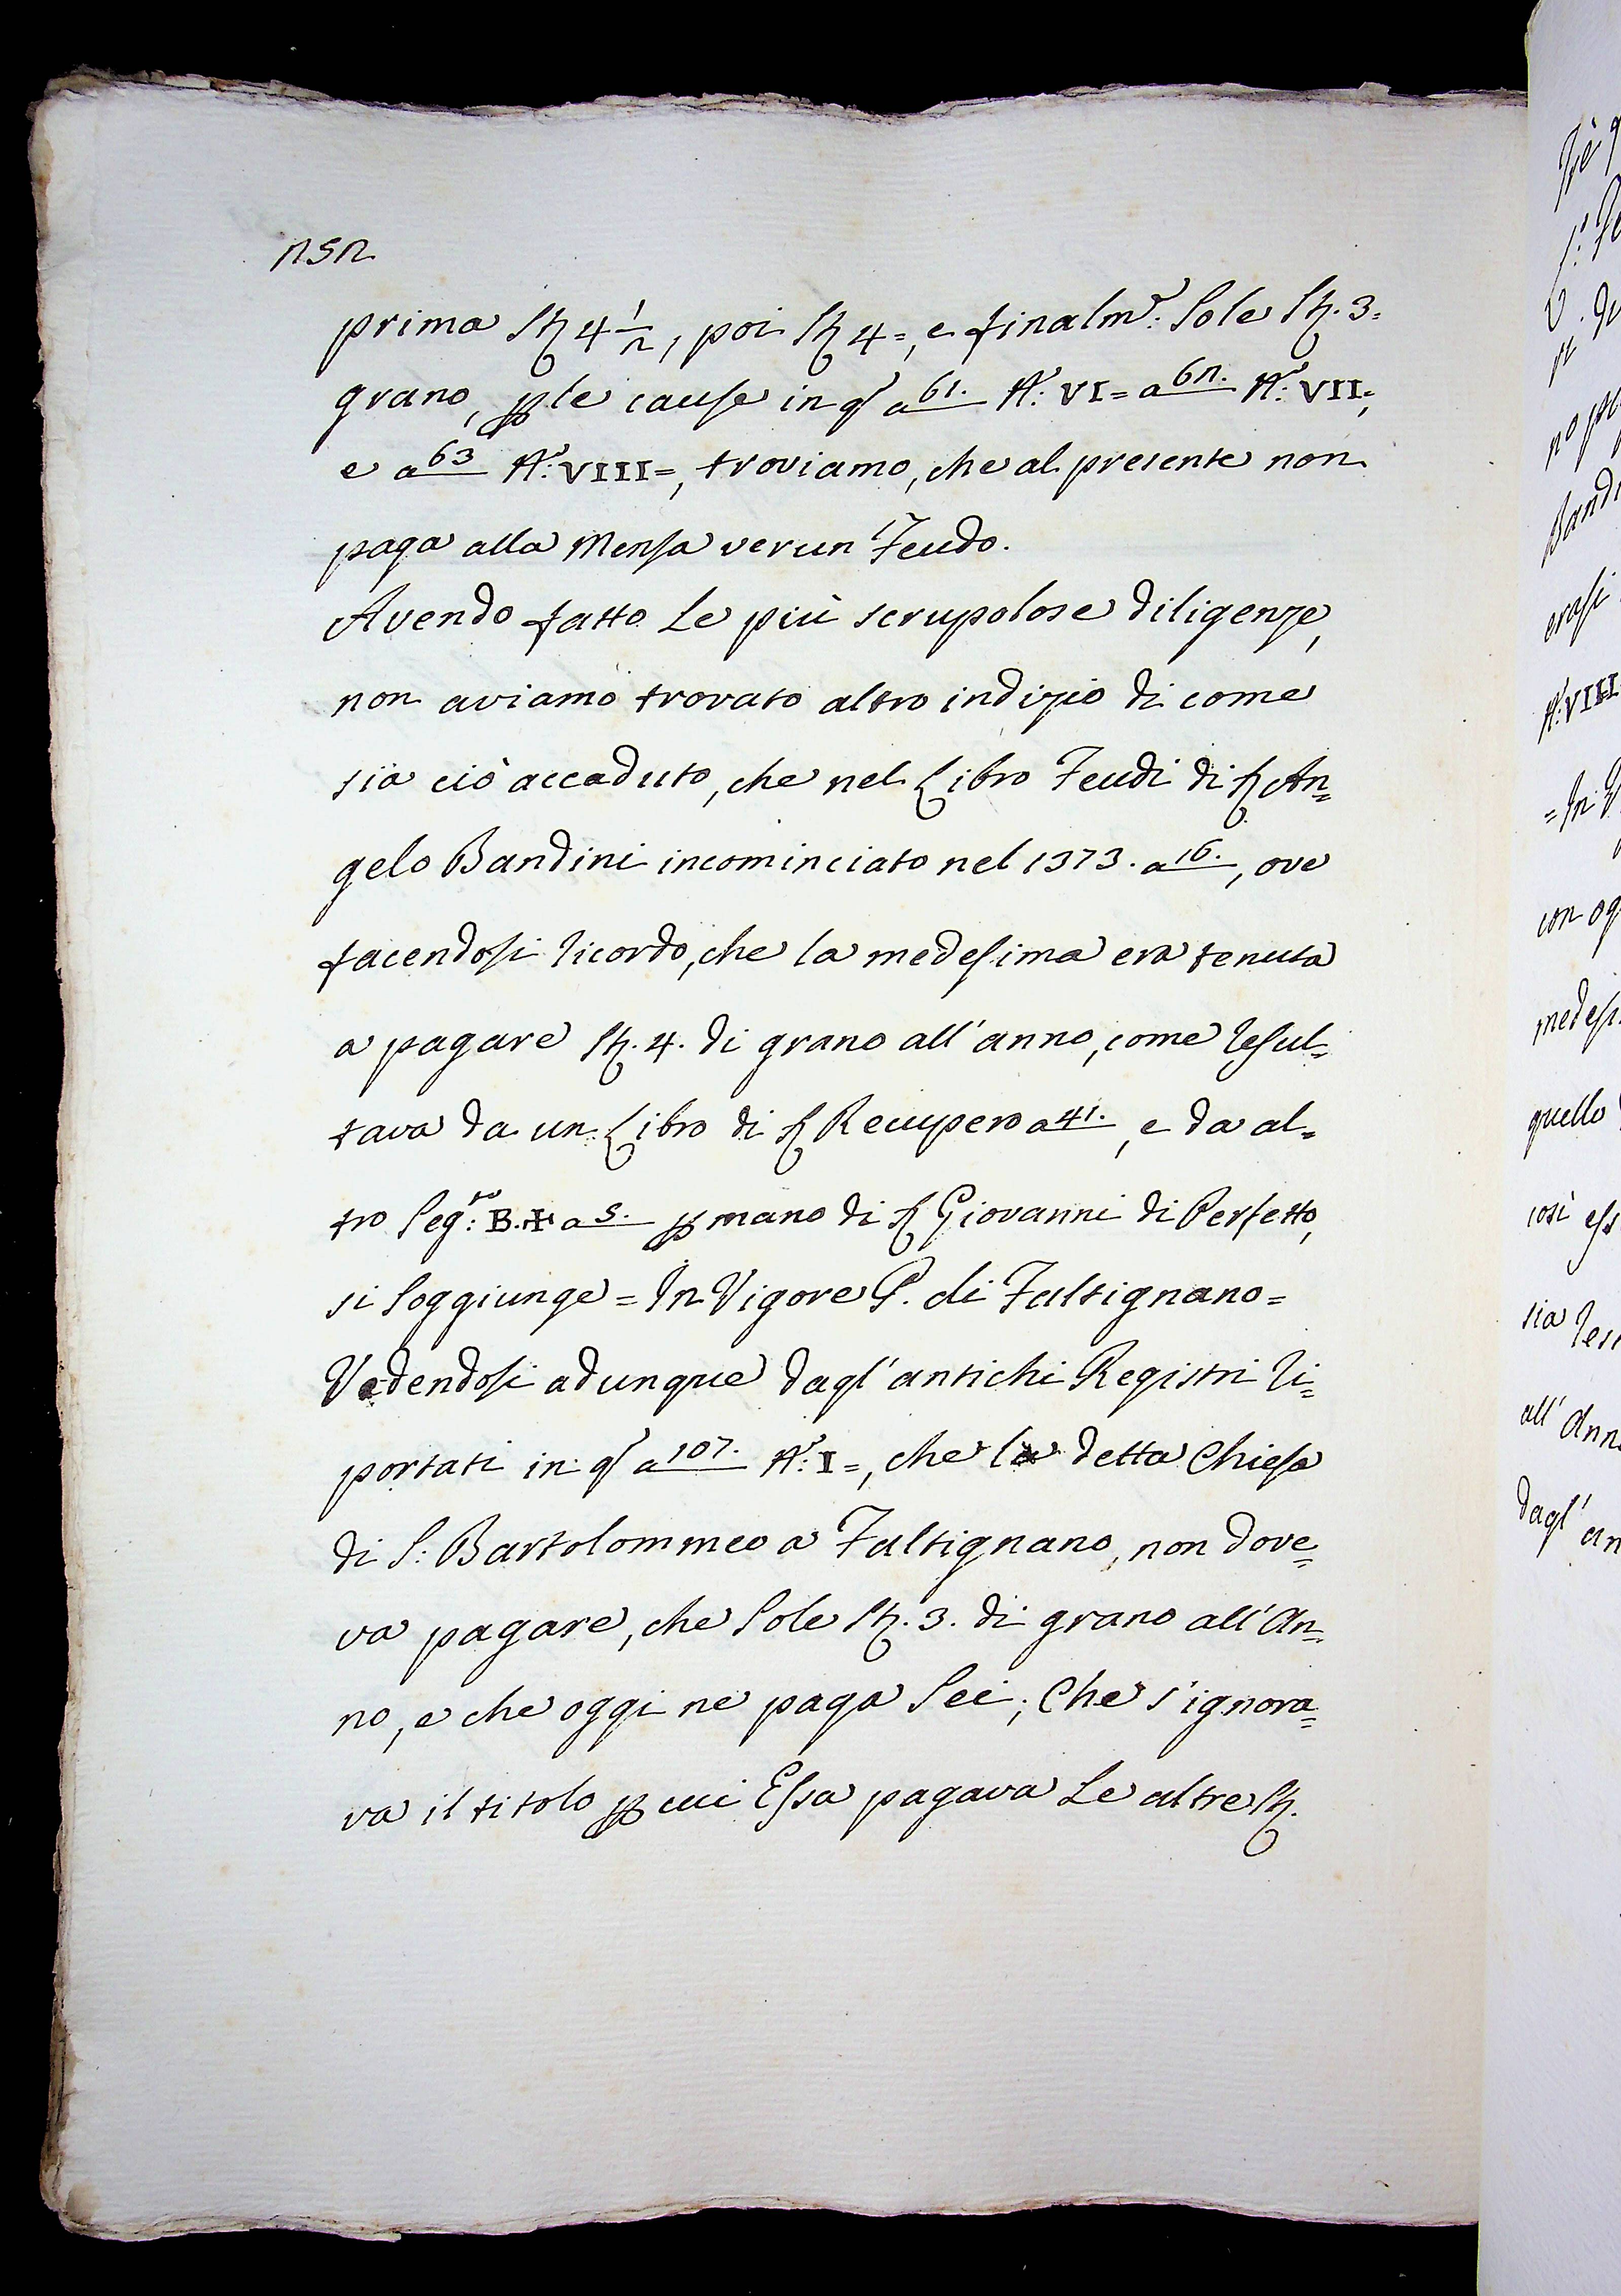 252
prima St. 4 1/2, poi St. 4=, e finalm.e: Sole St. 3=
grano, p le cause in q.o a 61. A.: VI= a 62. A.: VII=,
e a 63 A.: VIII=, troviamo, che al presente non
paga alla Mensa verun Feudo.
Avendo fatto Le più scrupolose diligenze,
non aviamo trovato altro indizio di come
sia ciò accaduto, che nel Libro Feudi di S. An=
gelo Bandini incominciato nel 1373. a 16., ove
facendosi ricordo, che la medesima era tenuta
a pagare St. 4. di grano all'anno, come resul=
tava da un Libro di S. Recupero a 41., e da al=
tro Seg.to: B. ✠ a 5. p mano di S. Giovanni di Perfetto,
si soggiunge = In Vigore P. di Faltignano =
Vedendosi adunque dagl'antichi Registri ri=
portati in q.o a 107. A.: I=, che la detta Chiesa
di S: Bartolommeo a Faltignano, non dove=
va pagare, che Sole St. 3. di grano all'An=
no, e che oggi ne paga Sei; Che s'ignora=
va il titolo p cui Essa pagava Le altre St.
all'Ann
dagl'an